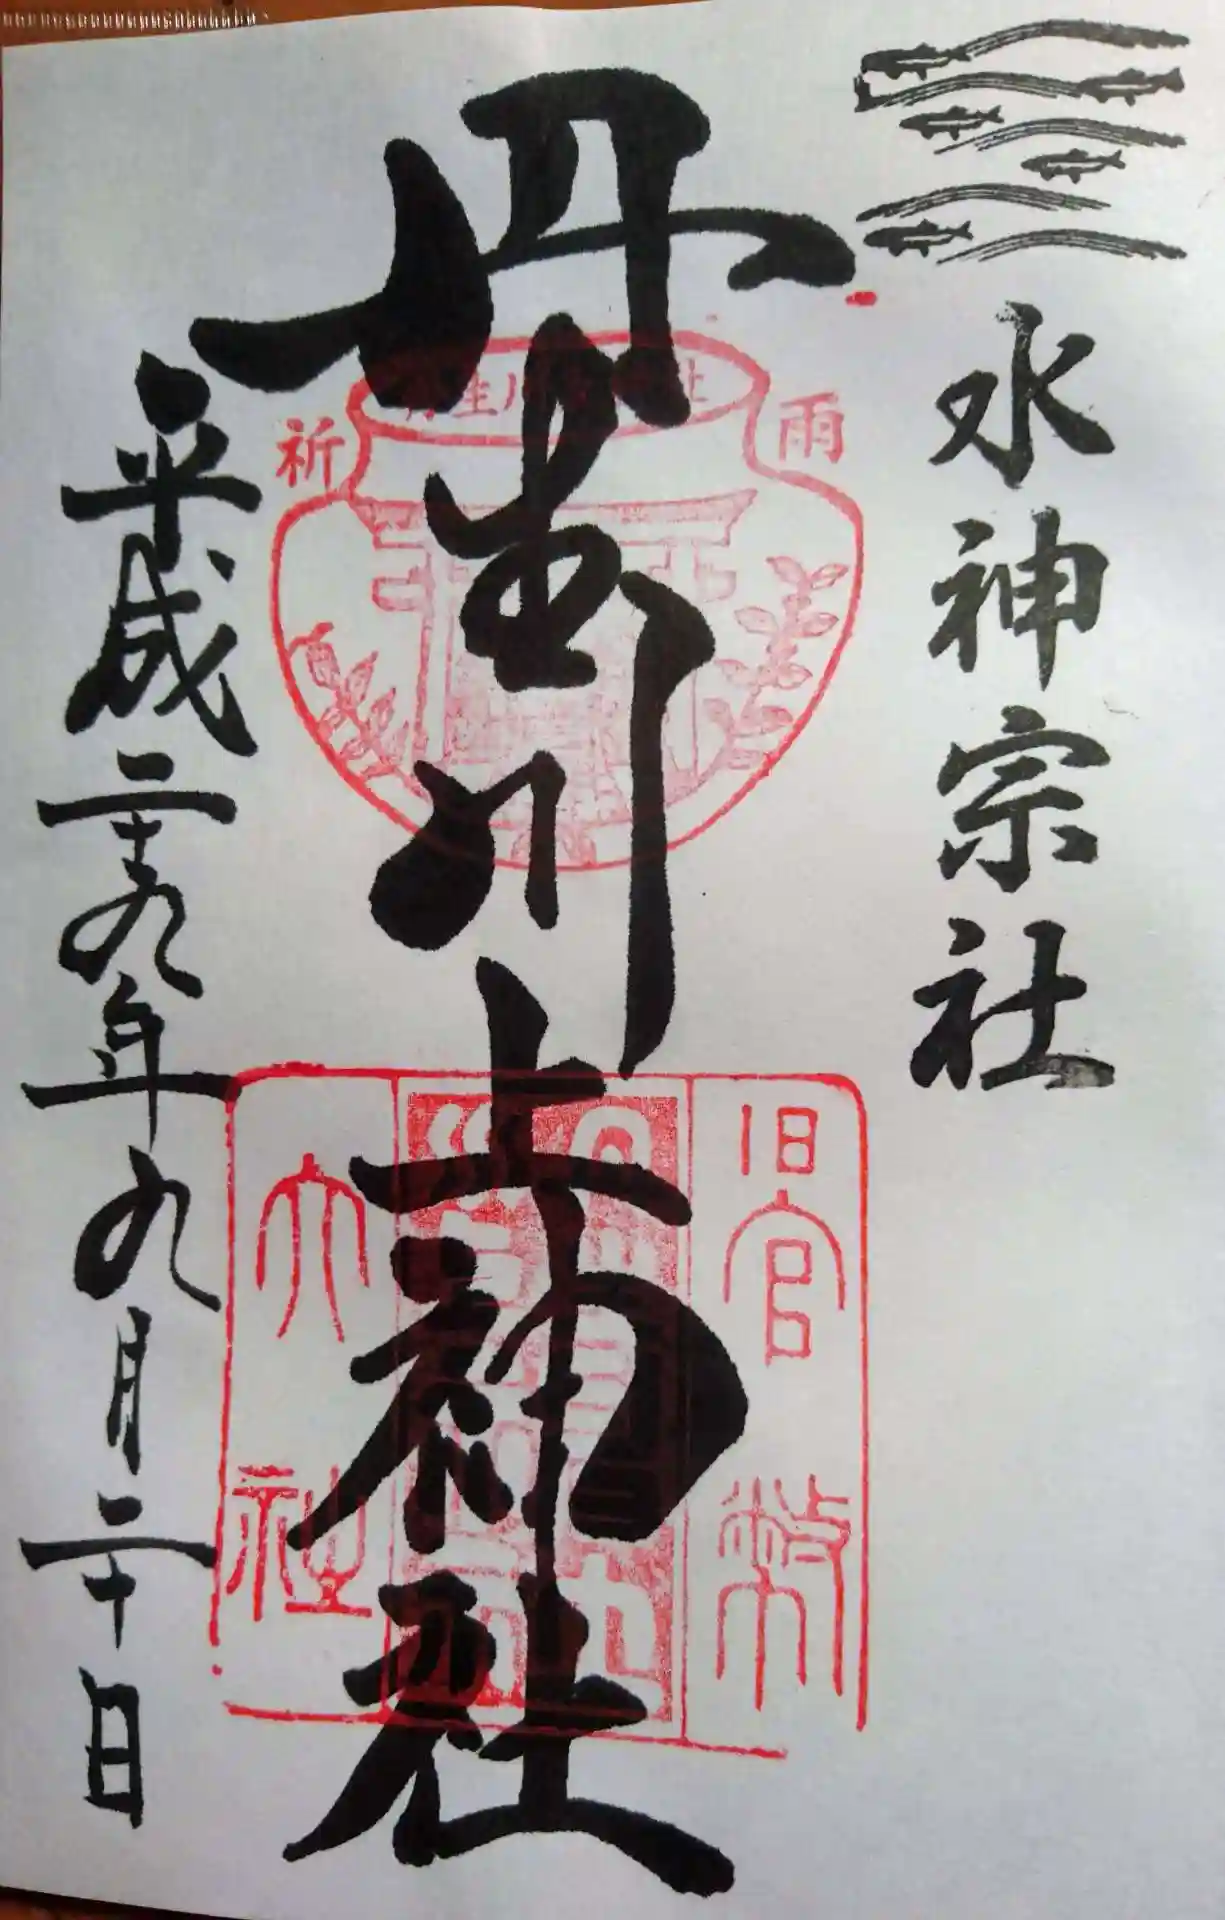 水神宗社
丹生川上神社
平成二十九年九月二十日
祈
雨
旧官幣
大社